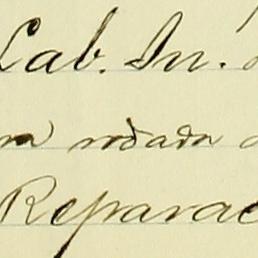 Lab. In.
rodada
Reparac